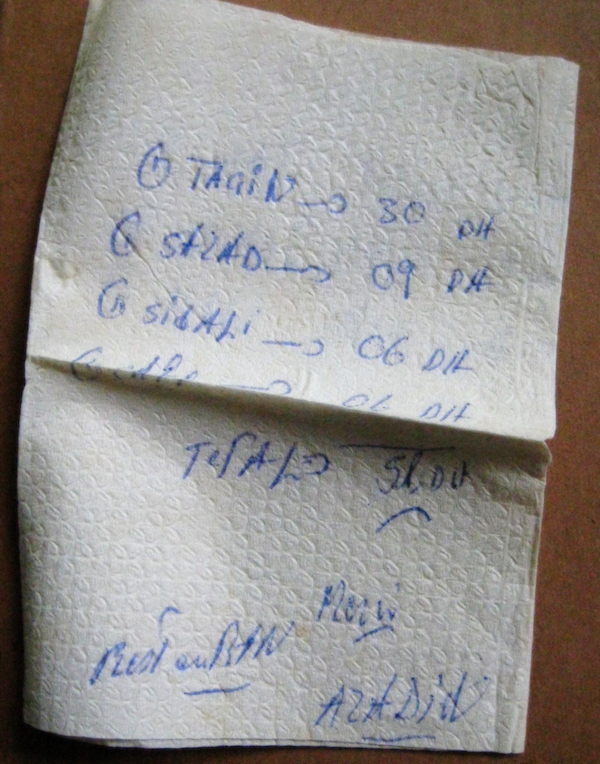 ① TAGiN → 30 DH
① SALAD → 09 DH
① sidALi → 06 DH
① → 06 DH
TOTAL → 51, DH
Merci
RestauRAN
AZADiN